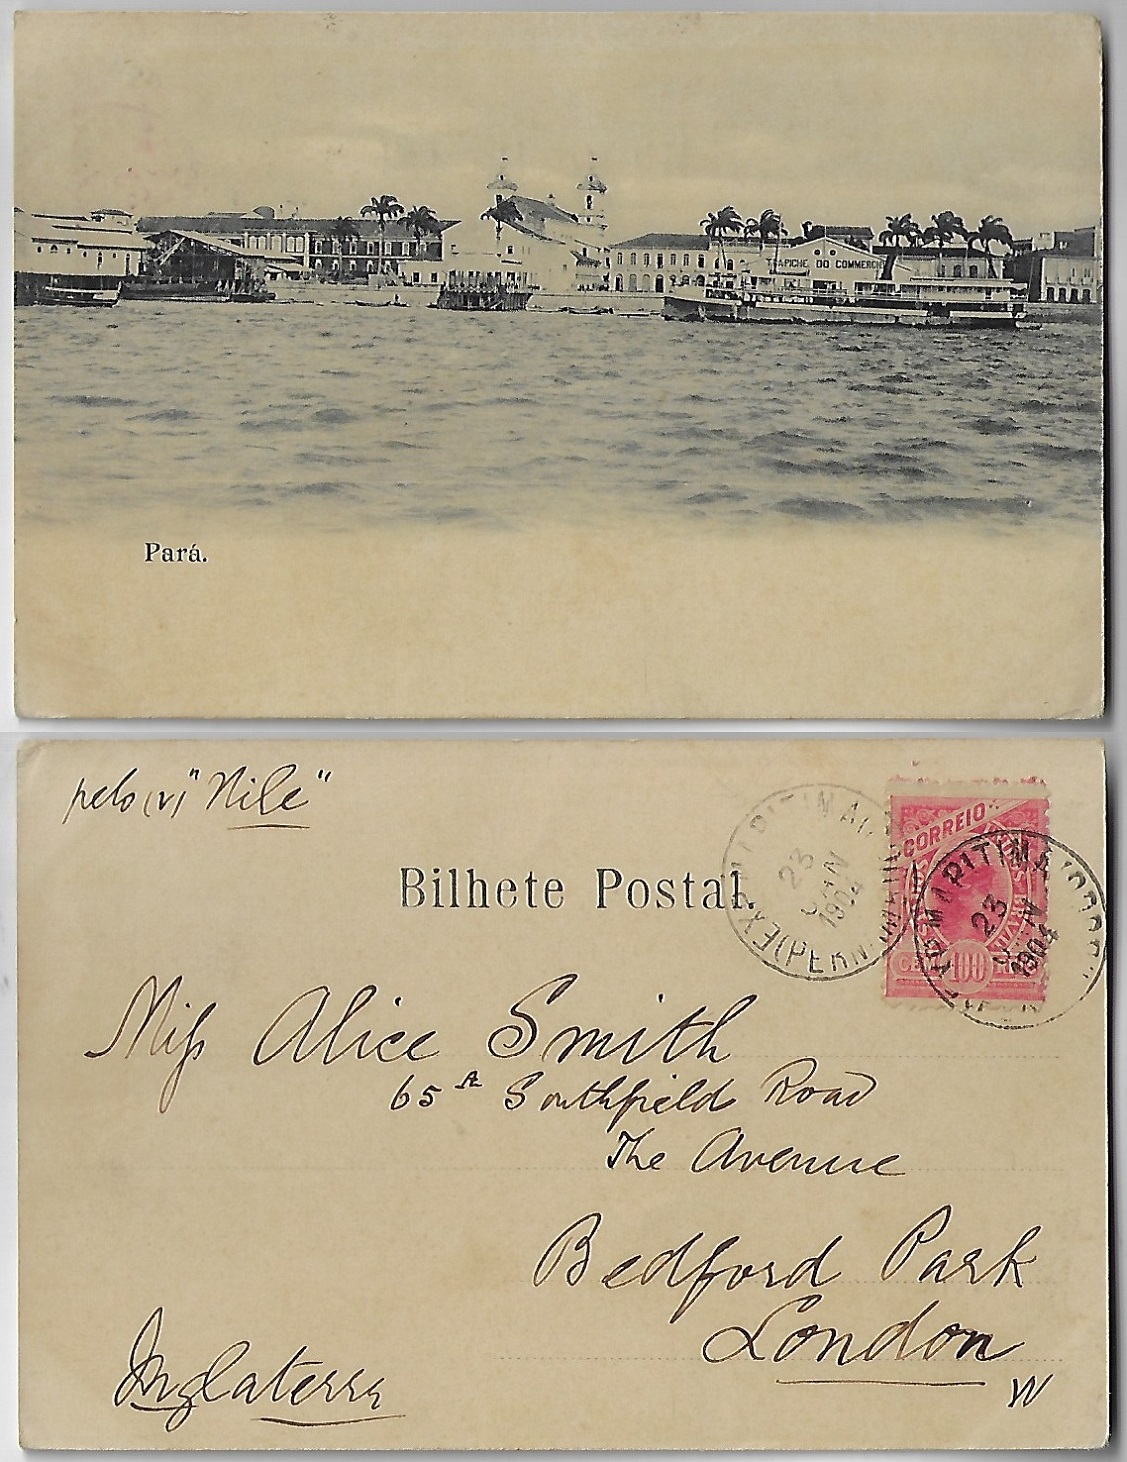 TRAPICHE DO COMMERCIO
Pará.
pelo (v) "Nile"
MARITIMA
23
JAN
1904
EX (PERNAMBUCO)
CORREIO
BRAZIL
100 REIS
MARITIMA
23
JAN
1904
Bilhete Postal.
Miss Alice Smith
65A Southfield Road
The Avenue
Bedford Park
London
W
Inglaterra